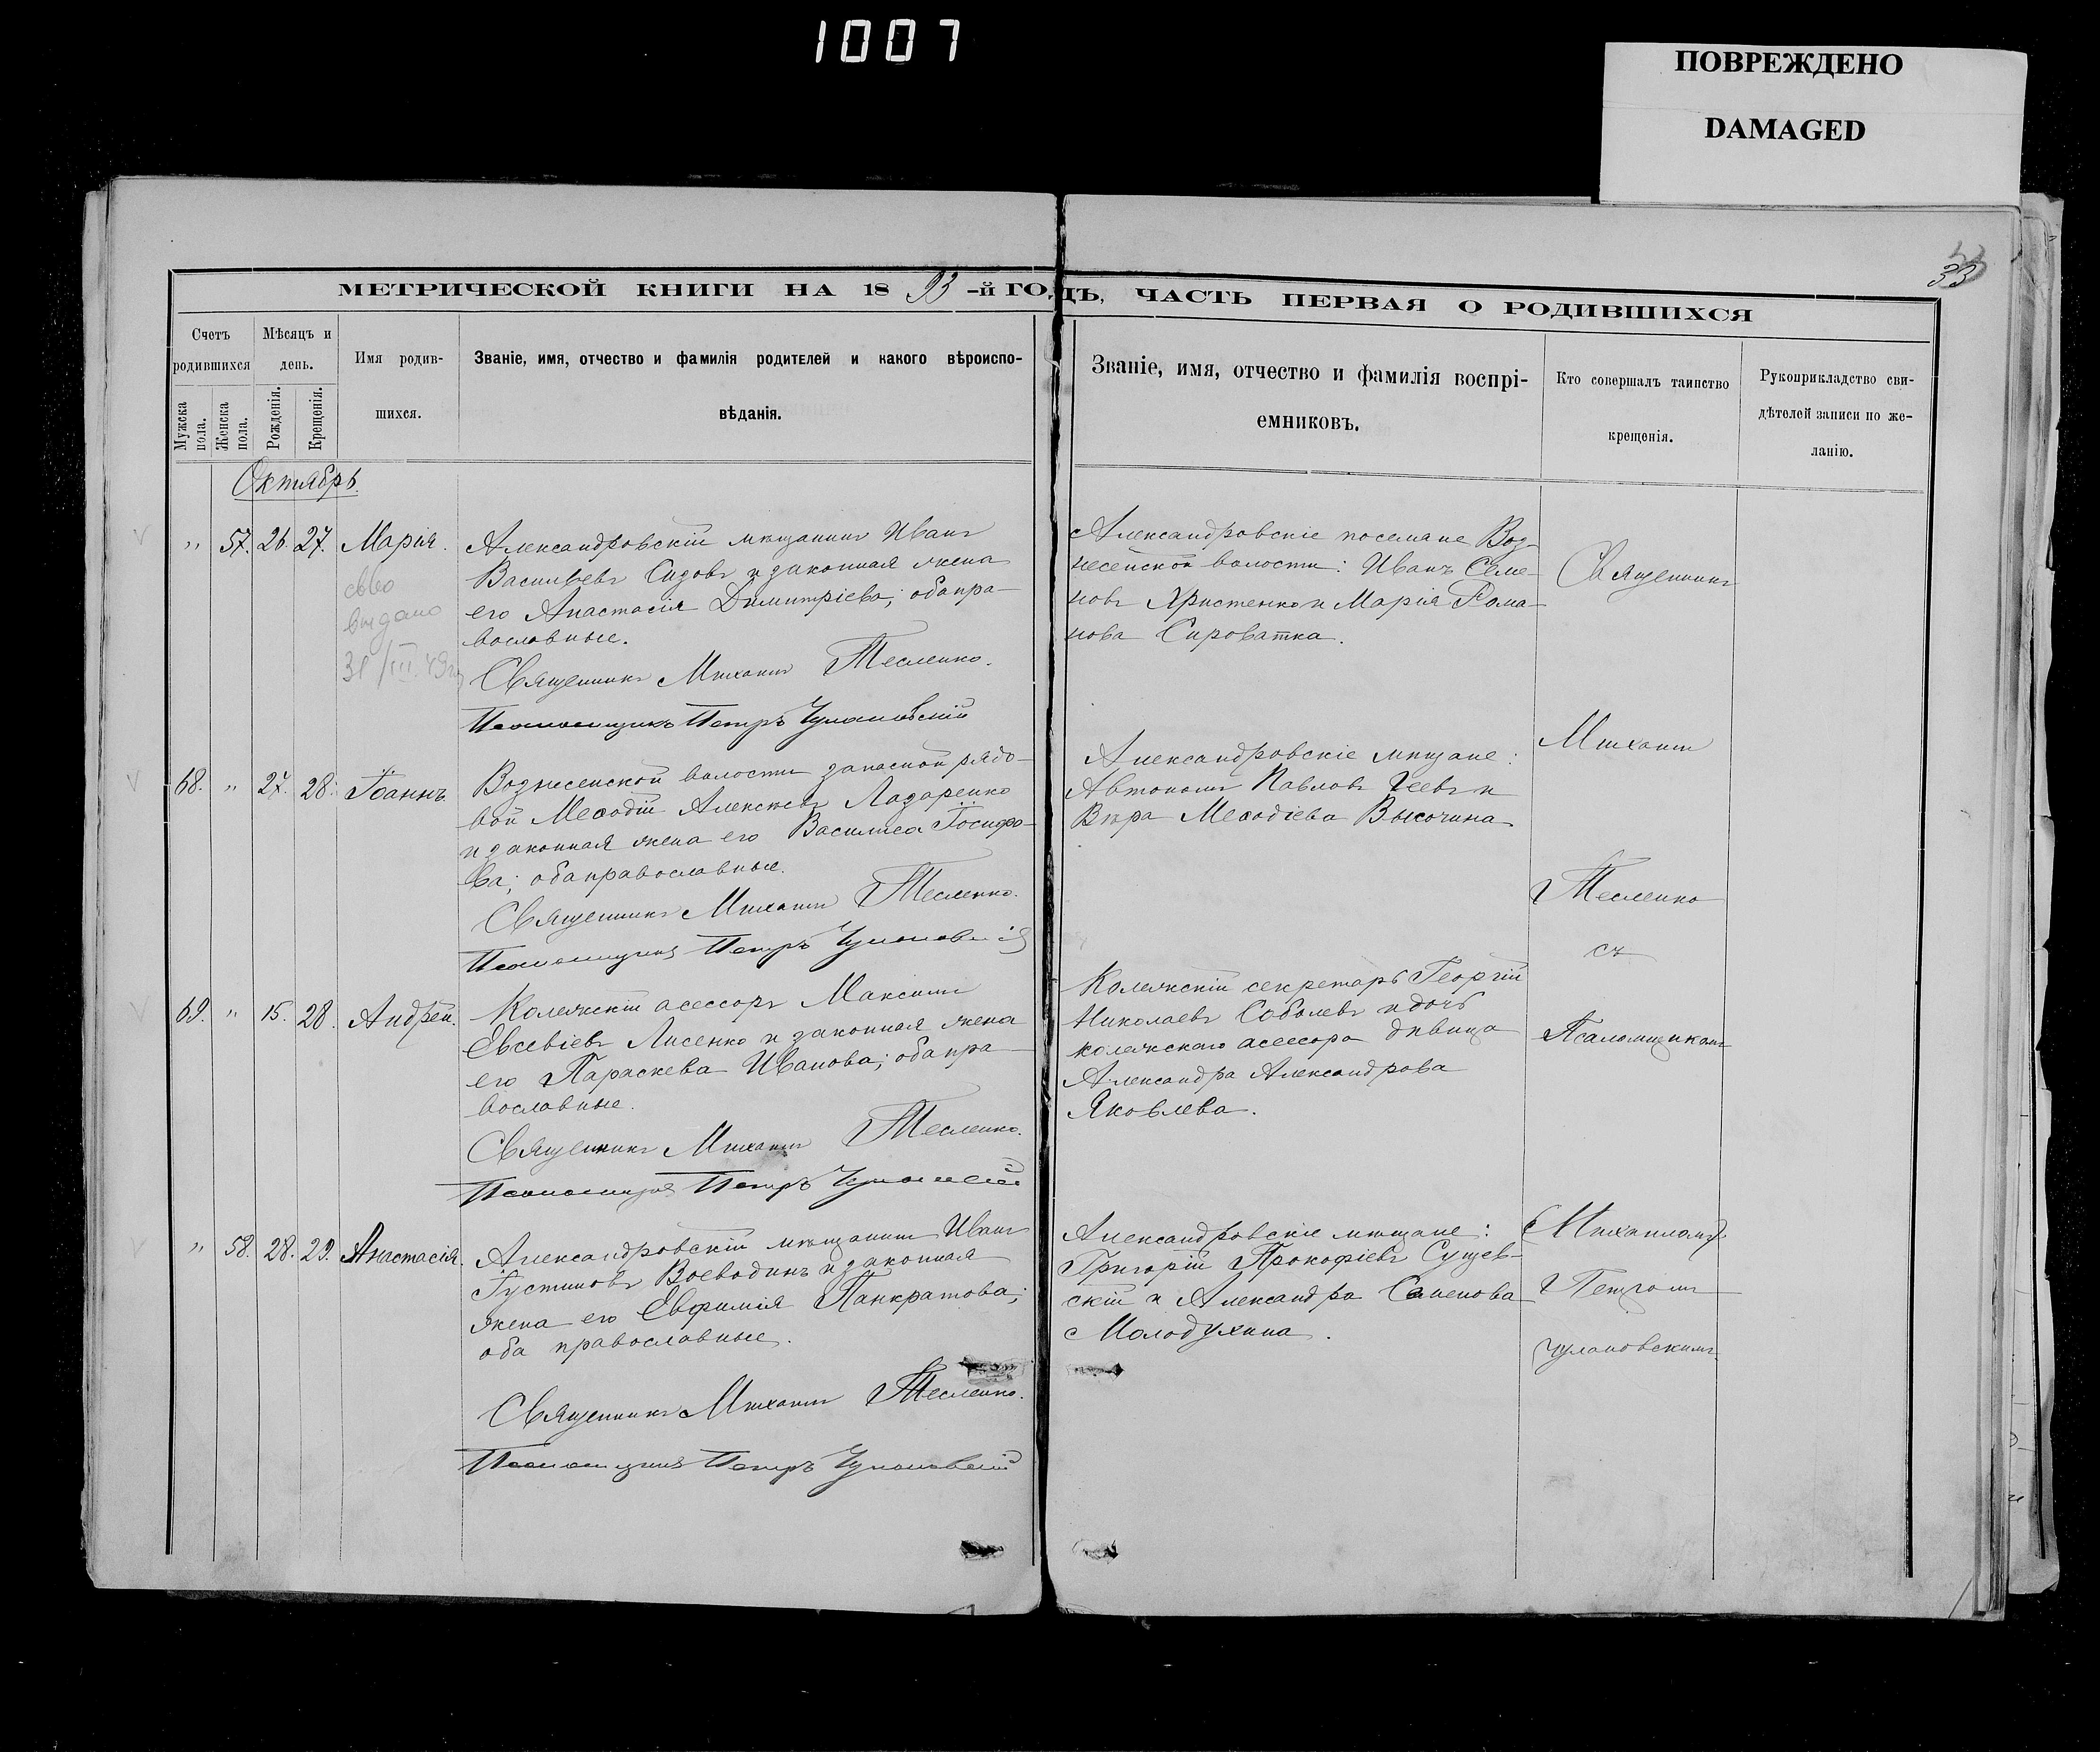 1007
ПОВРЕЖДЕНО
DAMAGED
33
МЕТРИЧЕСКОЙ КНИГИ НА 18 93 -й ГОДЪ, ЧАСТЬ ПЕРВАЯ О РОДИВШИХСЯ
Счетъ родившихся
Мужска пола.
Женска пола.
Мѣсяцъ и день.
Рожденія.
Крещенія.
Имя родив-
шихся.
Званіе, имя, отчество и фамилія родителей и какого вѣроиспо-
вѣданія.
Званіе, имя, отчество и фамилія воспрі-
емниковъ.
Кто совершалъ таинство
крещенія.
Рукоприкладство сви-
дѣтелей записи по же-
ланію.
Октябрь.
" 57. 26. 27. Марія.
выдано
31/III
Александровскій мѣщанинъ Иванъ
Васильевъ Сидовъ и законная жена
его Анастасія Димитріева; оба пра-
вославные.
Священникъ Михаилъ Тесленко.
Псаломщикъ Петръ Чулановскій
Александровскіе поселяне Воз-
несенской волости: Иванъ Семе-
новъ Христенко и Марія Рома-
нова Сироватка.
68. " 27. 28. Іоаннъ.
Вознесенской волости запасной рядо-
вой Меѳодій Алексѣевъ Лазаренко
и законная жена его Василиса Іосифо-
ва; оба православные.
Священникъ Михаилъ Тесленко.
Псаломщикъ Петръ Чулановскій
Александровскіе мѣщане:
Автономъ Павловъ и
Вѣра Меѳодіева Высочина
69. " 15. 28. Андрей.
Колежскій асессоръ Максимъ
Евсевіевъ Лисенко и законная жена
его Параскева Иванова; оба пра-
вославные.
Священникъ Михаилъ Тесленко.
Псаломщикъ Петръ Чулановскій
Колежскій секретарь Георгій
Николаевъ Соболевъ и дочь
колежскаго асессора дѣвица
Александра Александрова
Яковлева.
" 58. 28. 29. Анастасія.
Александровскій мѣщанинъ Иванъ
Іустиновъ Воеводинъ и законная
жена его Евфимія Панкратова;
оба православные.
Священникъ Михаилъ Тесленко.
Псаломщикъ Петръ Чулановскій
Александровскіе мѣщане:
Григорій Прокофіевъ Сущев-
скій и Александра Семенова
Молодухина.
Священникъ
Михаилъ
Тесленко
съ
Псаломщикомъ
Михаиломъ
Петромъ
Чулановскимъ.